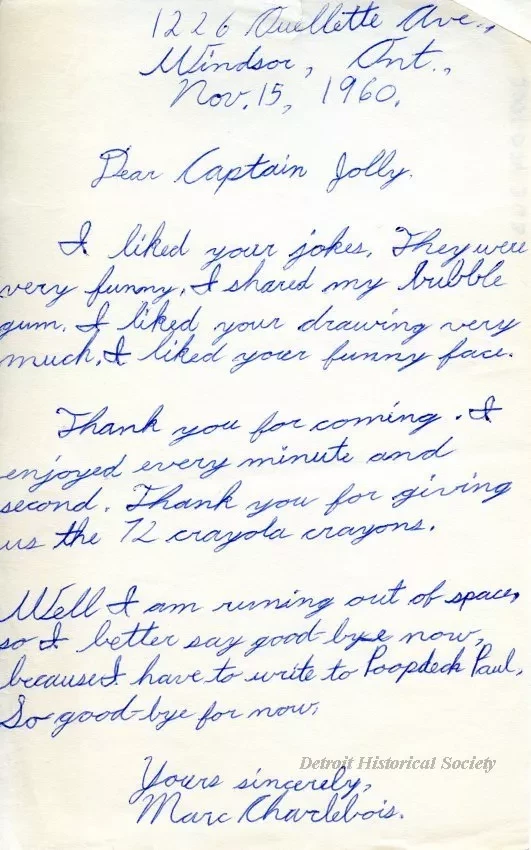 1226 Ouellette Ave.,
Windsor, Ont.,
Nov. 15, 1960.
Dear Captain Jolly.
I liked your jokes. They were
very funny. I shared my bubble
gum. I liked your drawing very
much. I liked your funny face.
Thank you for coming. I
enjoyed every minute and
second. Thank you for giving
us the 72 crayola crayons.
Well I am runing out of space,
so I better say good-bye now,
because I have to write to Poopdeck Paul,
So good-bye for now,
Detroit Historical Society
Yours sincerely,
Marc Charlebois.